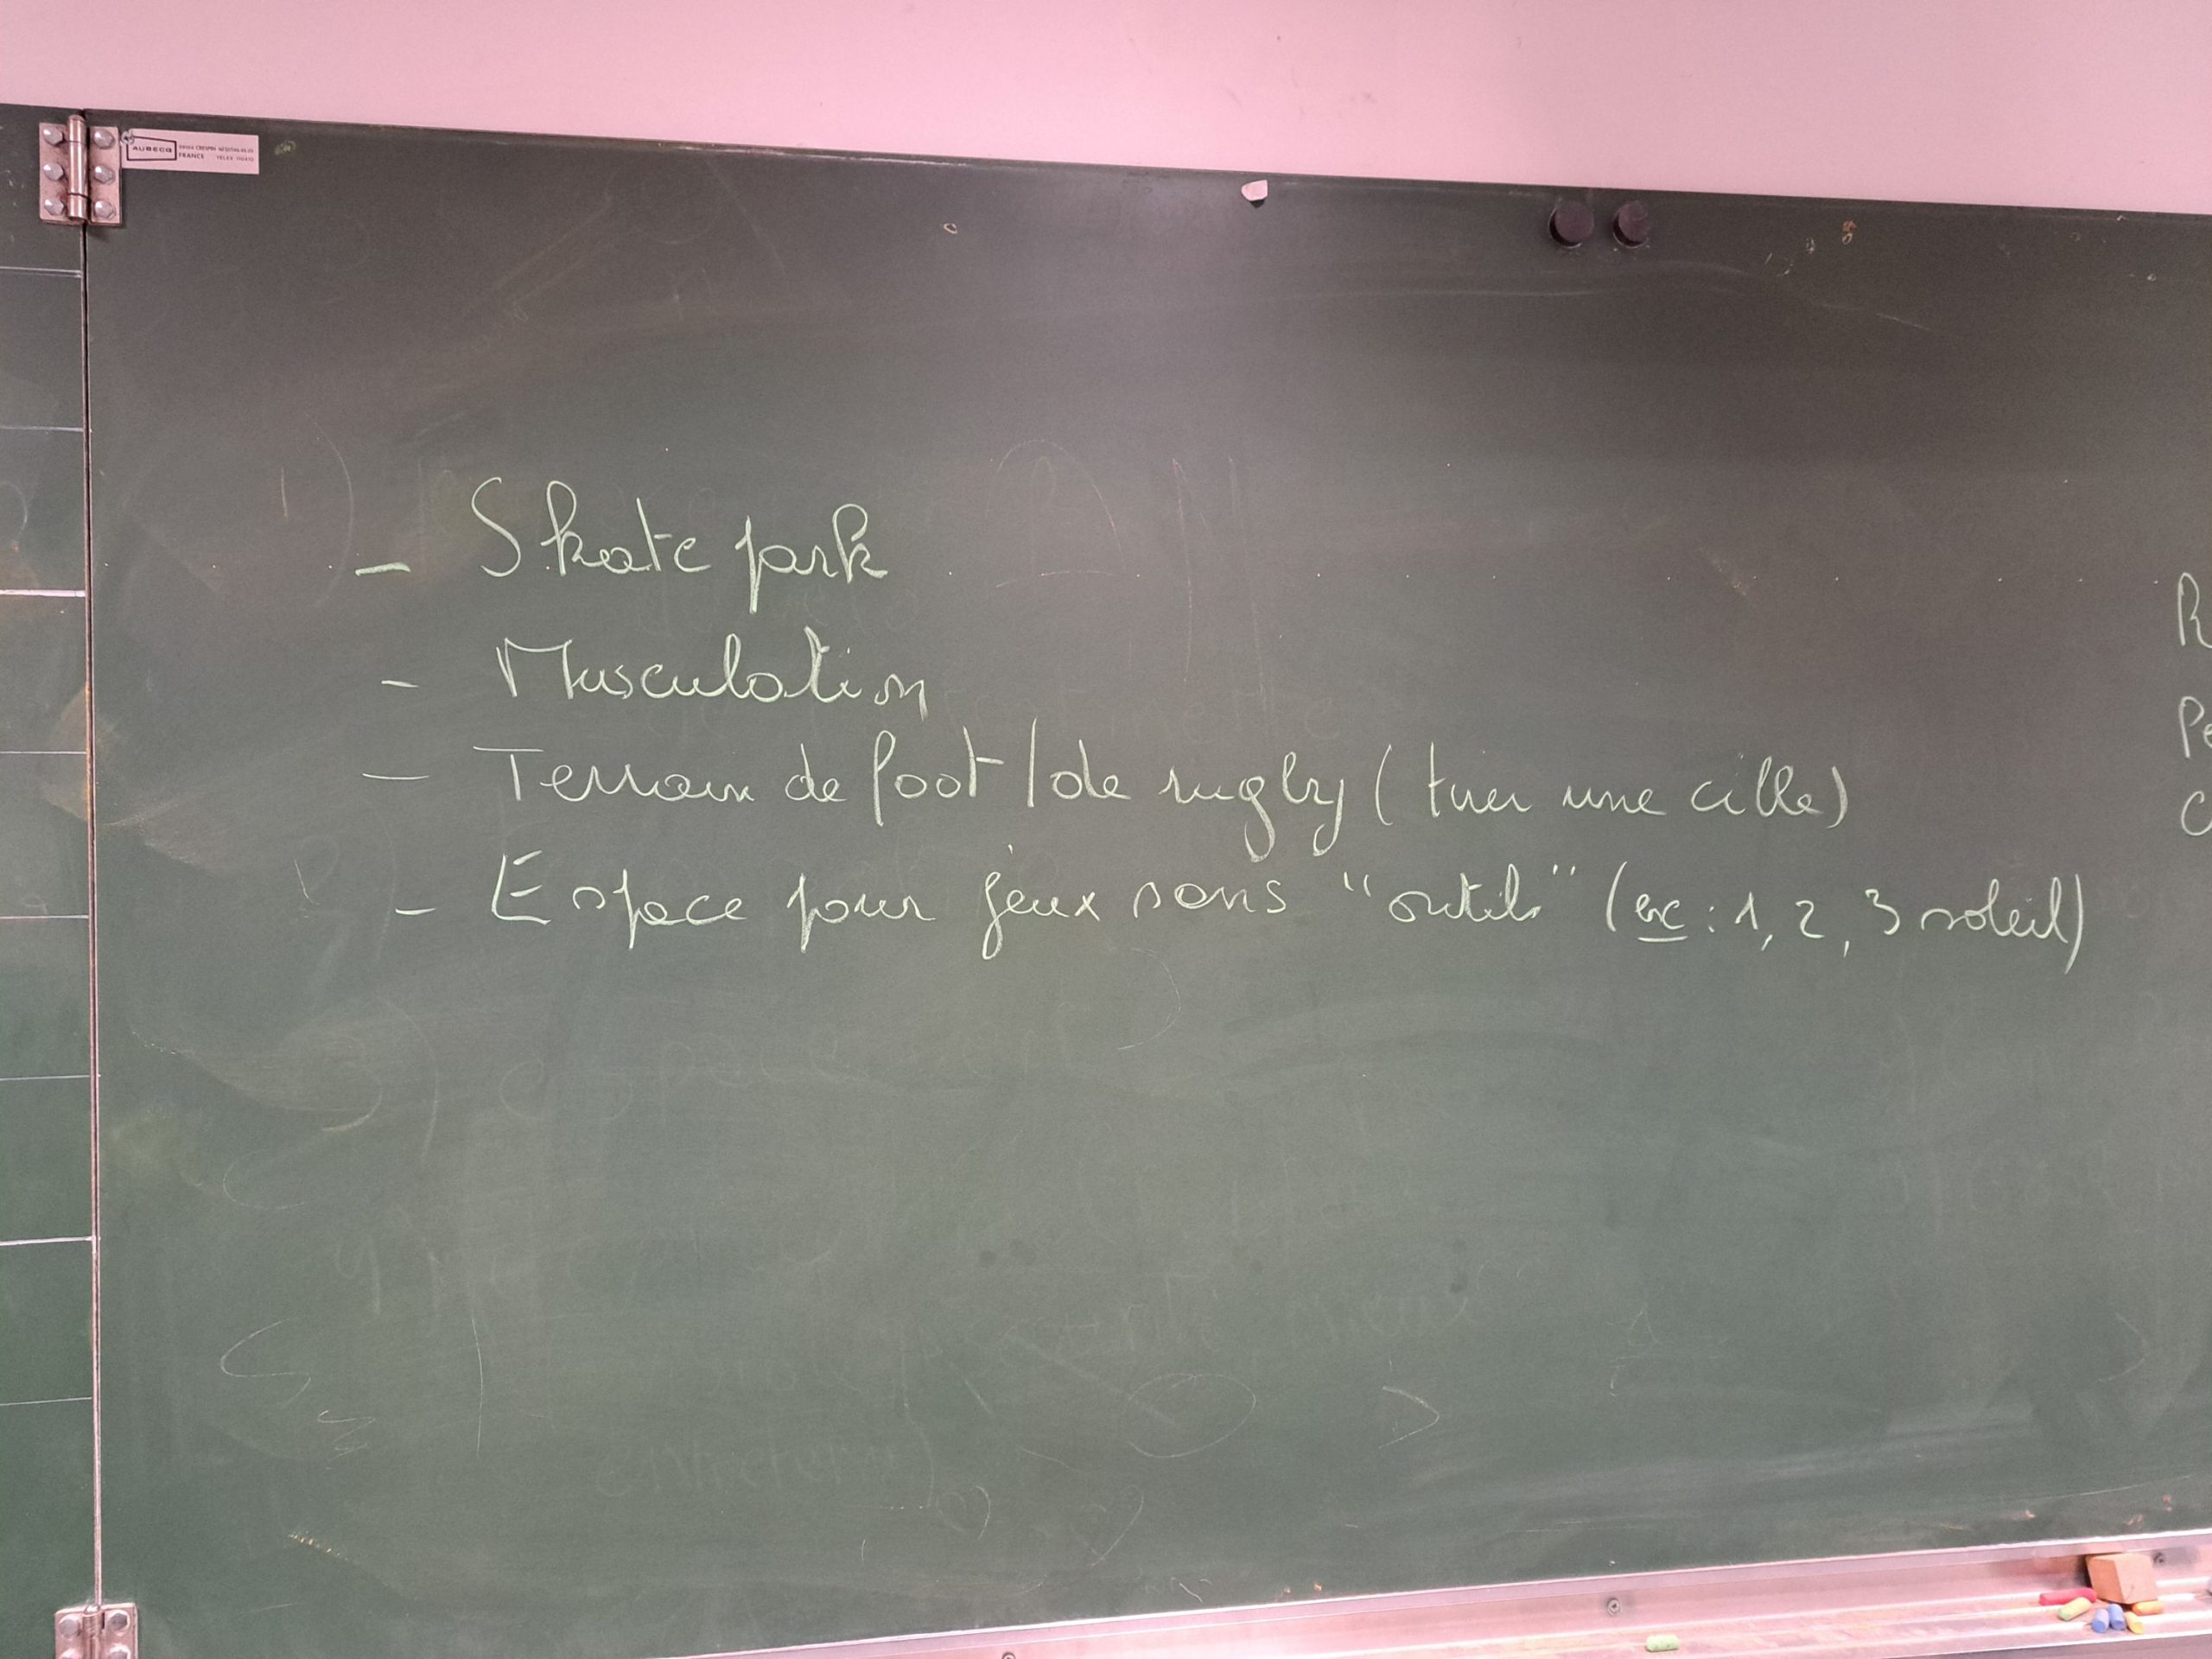 AUBECQ
FRANCE
- Skate park
- Musculation
- Terrain de foot / de rugby ( tuer une cille)
- Espace pour jeux sans "outils" (ex : 1, 2, 3 soleil)
R
Pe
C